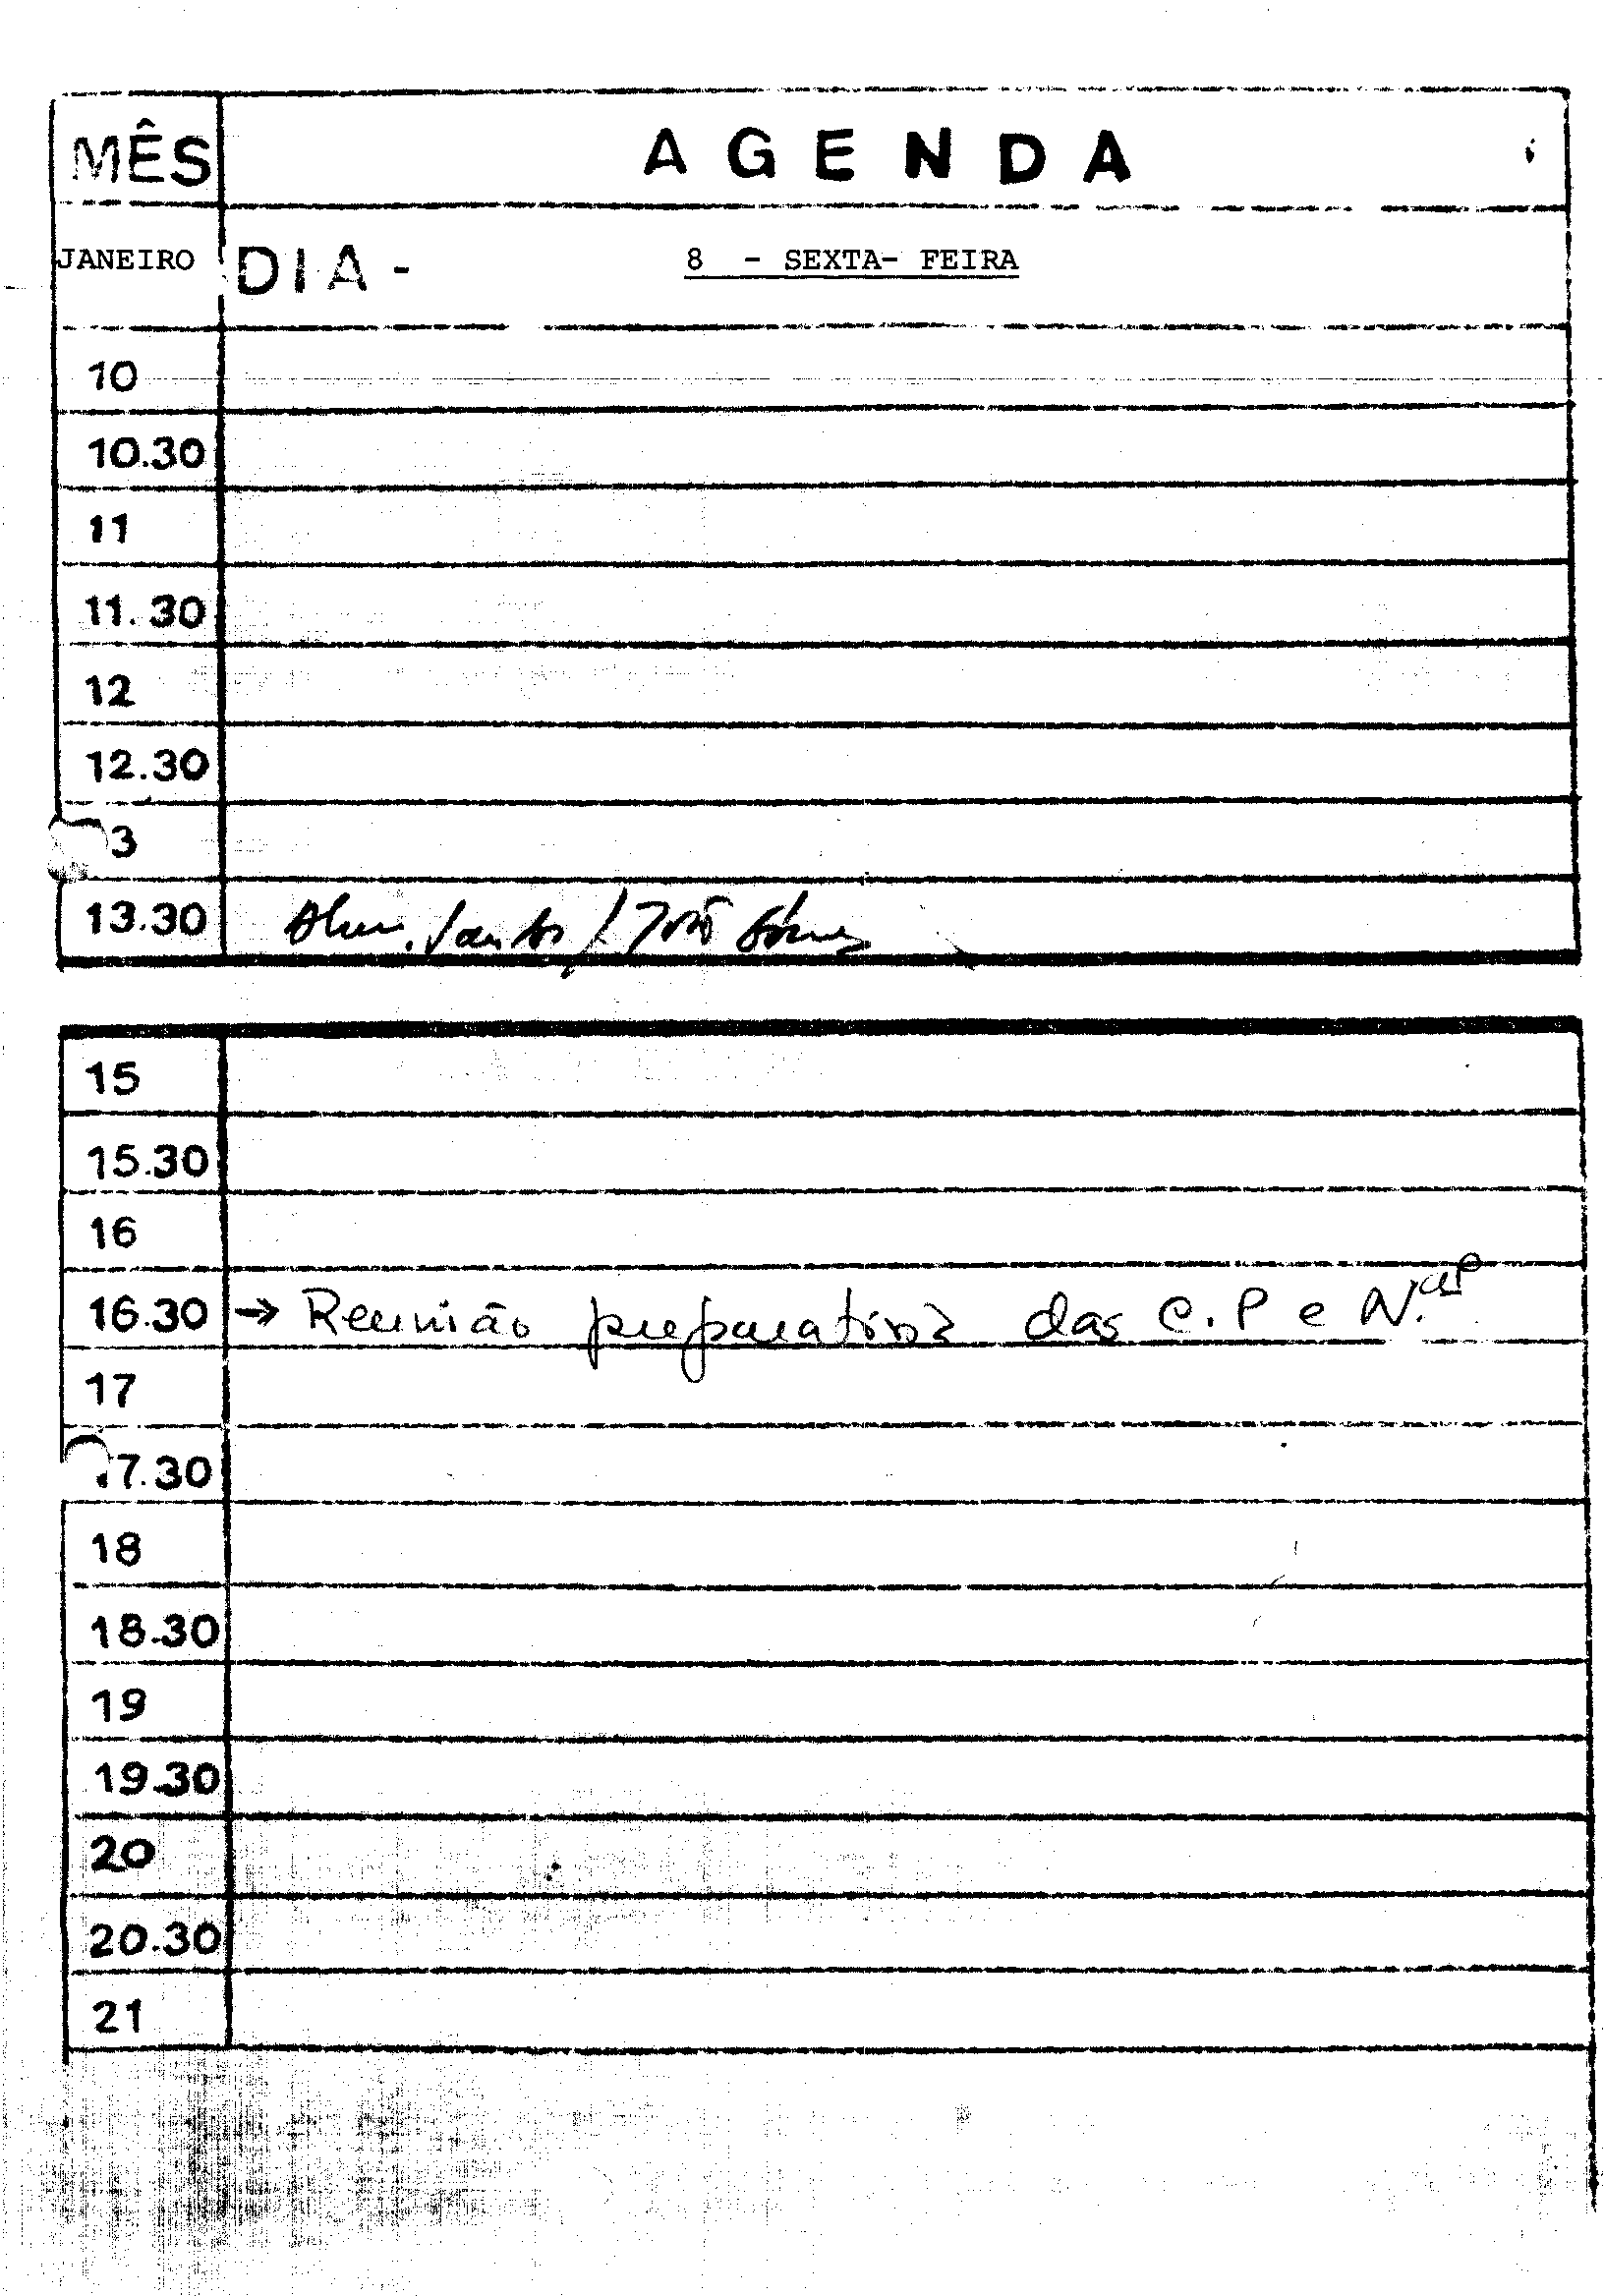 MÊS AGENDA
JANEIRO DIA - 8 - SEXTA- FEIRA
10
10.30
11
11.30
12
12.30
3
13.30 Santos / João Gomes
15
15.30
16
16.30 → Reunião preparatória das C. P e N.
17
7.30
18
18.30
19
19.30
20
20.30
21